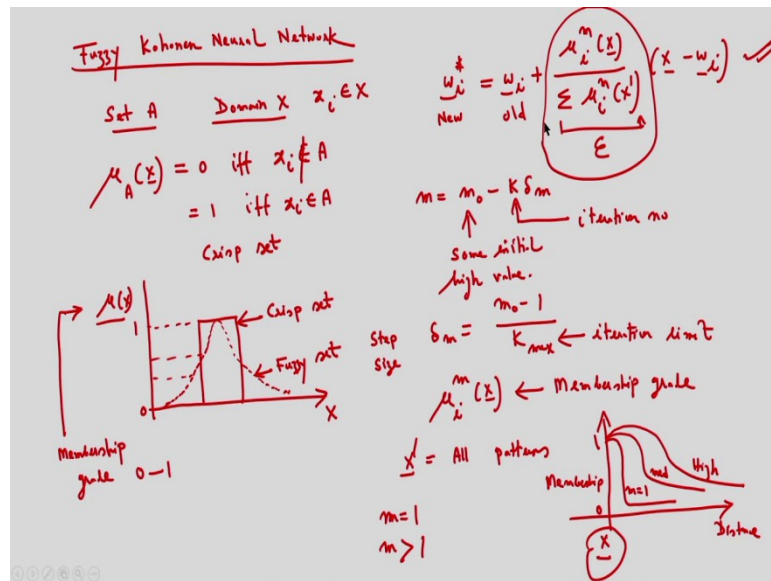 Fuzzy Kohonen Neural Network
Set A Domain X x_i ∈ X
μ_A(x) = 0 iff x_i ∉ A
= 1 iff x_i ∈ A
Crisp set
μ(x)
1
0
Crisp set
Fuzzy set
X
Membership
grade 0-1
w_i* = w_i + μ_i^m(x) / Σ μ_i^m(x') (x - w_i)
New old
Σ
m = m_0 - K δ_m
itertion no
some initil
high value.
Step
size δ_m = m_0 - 1 / K_max ← itertion limit
μ_i^m(x) ← Membership grade
x' = All patterns
m=1
m>1
1
Membership
0
m=1
med
High
Distance
x